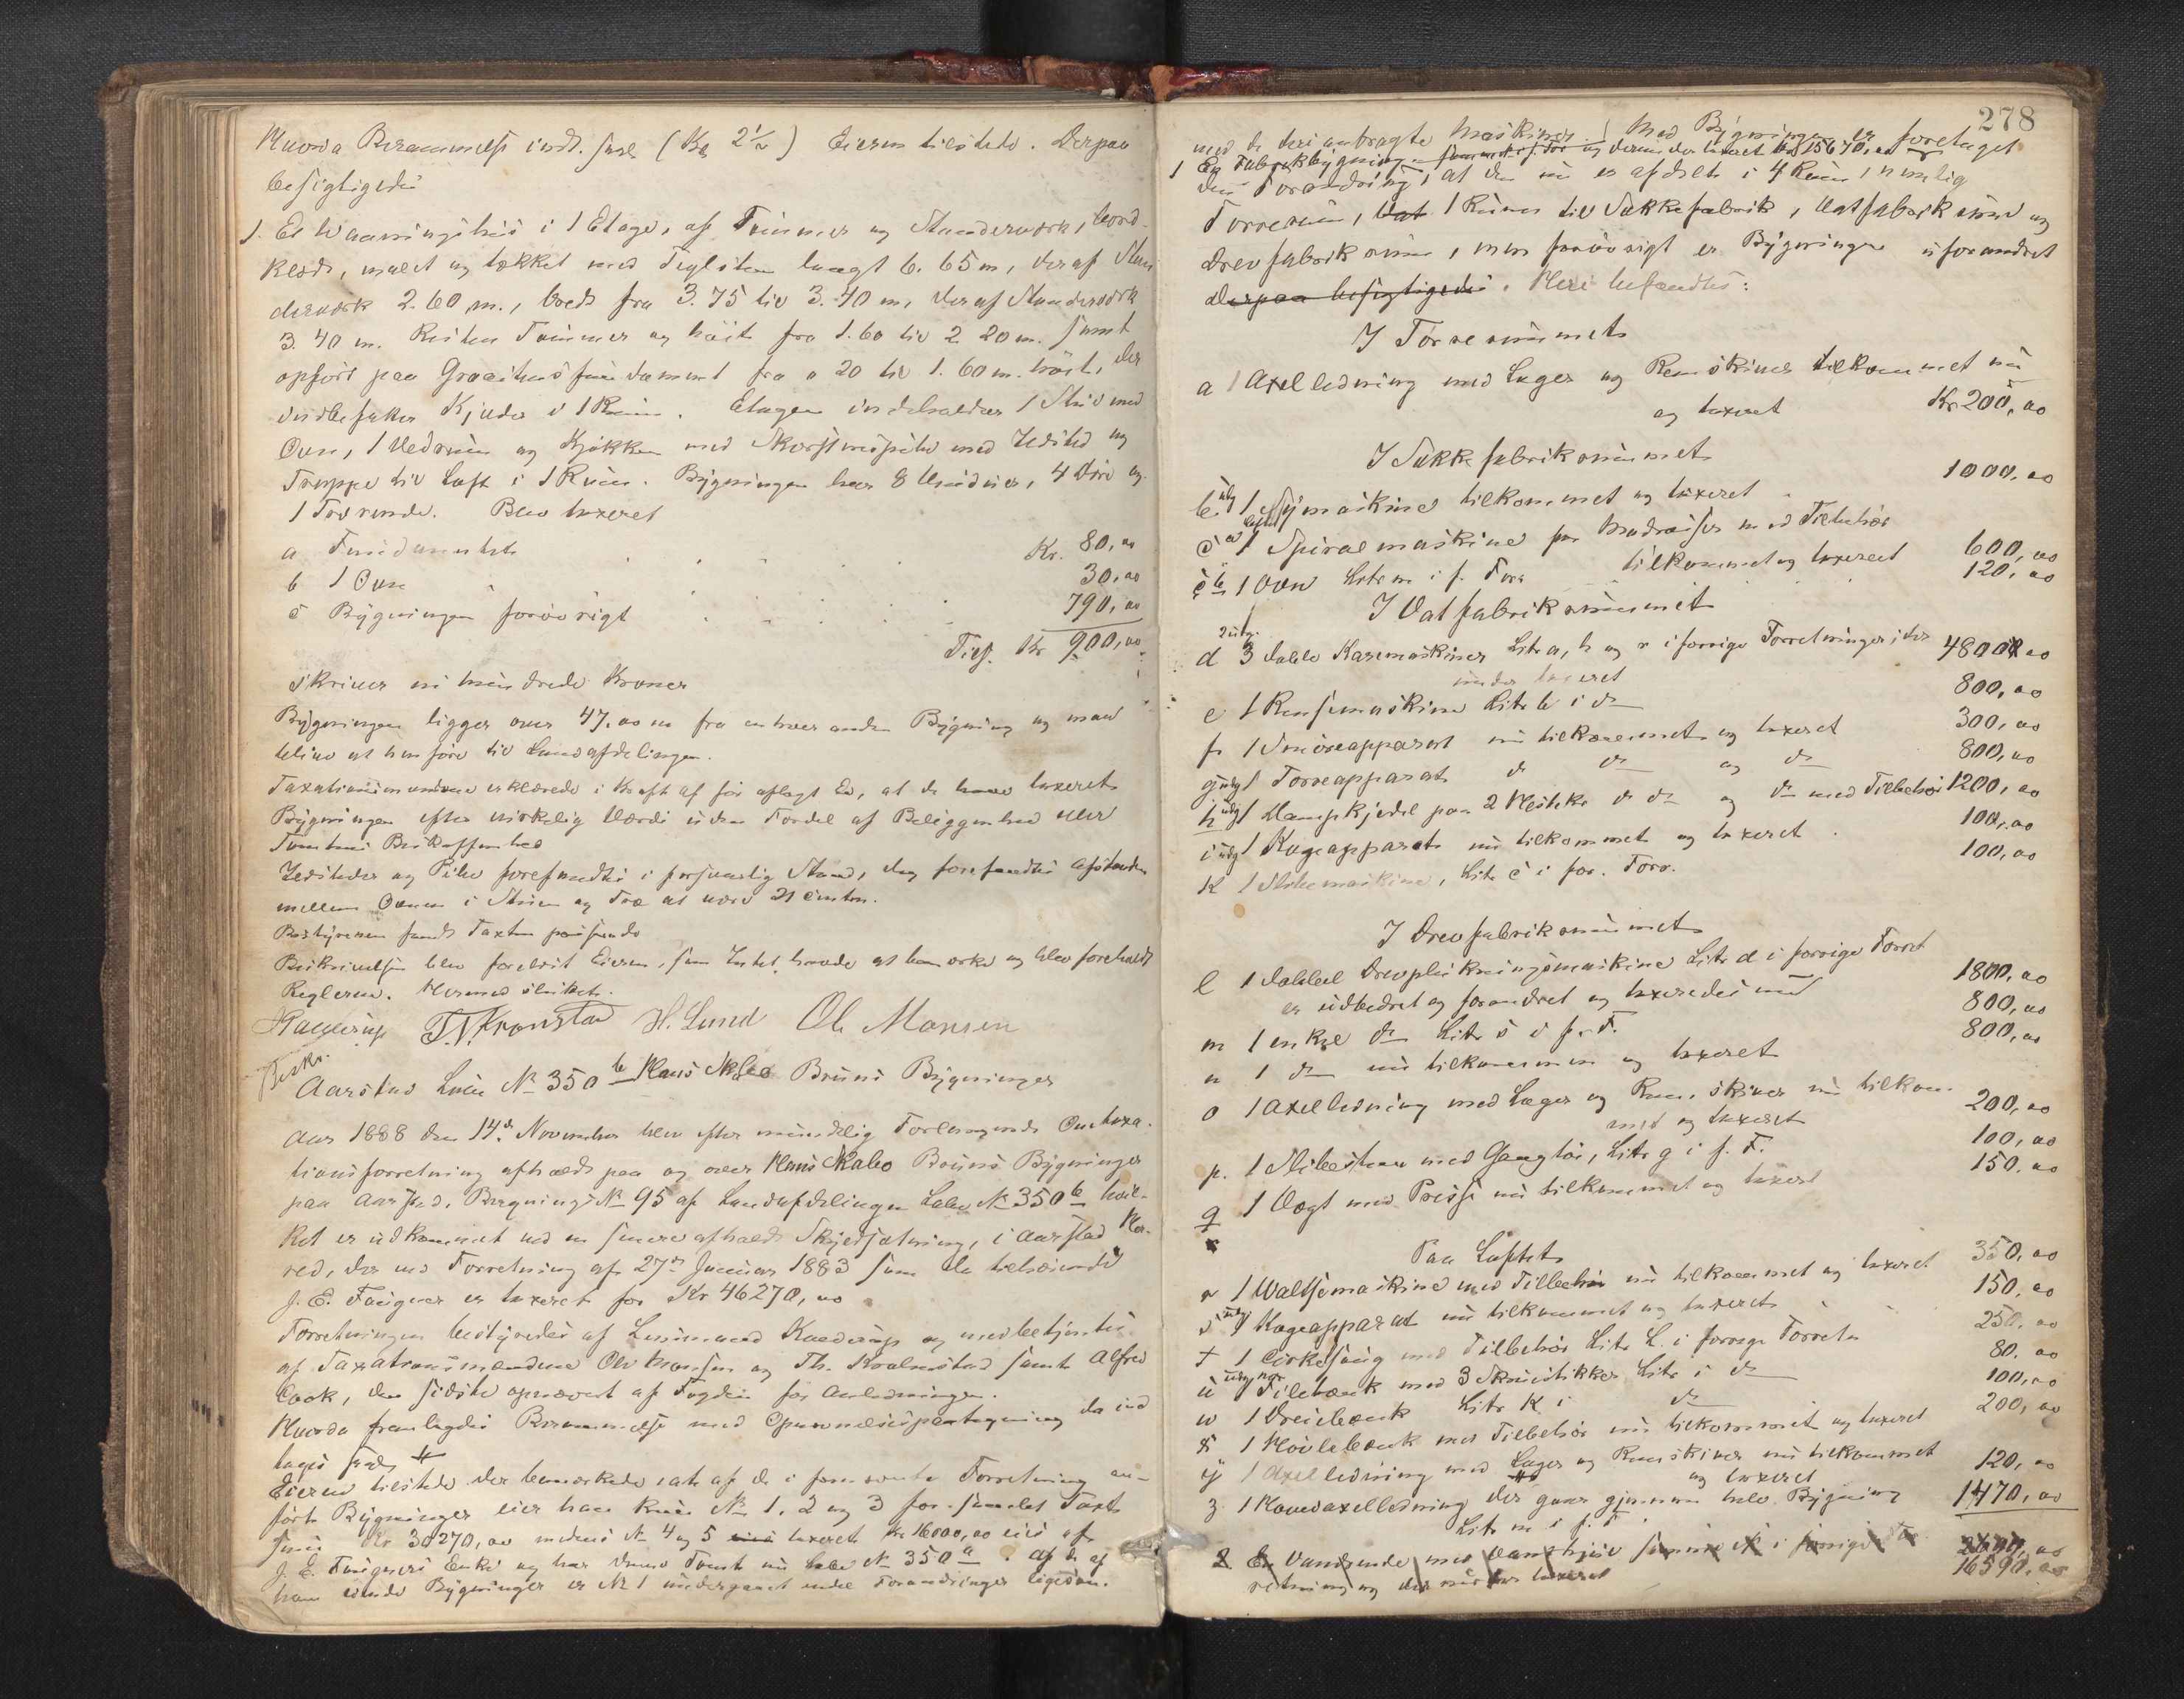 Hvorda Berammelse indt. saal. (Kl 2½) Eieren tilstede. Derpaa
besigtigedes
1. Et Vaaningshus i 1 Etage, af Tømmer og Stænderværk, bord-
klædt, malet og tækket med Teglsten langt 6.65 m, deraf Stæn
derværk 2.60 m., bredt fra 3.75 til 3.40 m, deraf Stænderværk
3.40 m. Resten Tømmer og høit fra 1.60 til 2.20 m. samt
opført paa Graastensfundament fra 0 20 til 1.60 m. høit, der
indbefatter Kjelder i 1 Rum. Etagen indeholder 1 Stue med
Ovn, 1 Vedrum og Kjøkken med Skorstenspibe med Ildsted og
Trappe til Loft i 1 Rum. Bygningen har 8 Vinduer, 4 Døre og
1 Tagrende. Blev taxeret
a Fundamentet Kr. 80,00
b 1 Ovn 30,00
c Bygningen forøvrigt 790,00
Tils. Kr 900,00
skriver ni hundrede Kroner
Bygningen ligger over 47,00 m fra enhver anden Bygning og maa
blive at henføre til Landafdelingen.
Taxationsmændene erklærede i Kraft af før aflagt Ed, at de have taxeret
Bygningen efter virkelig Værdi uden Fordel af Beliggenhed eller
Tomtens Beskaffenhed
Ildsteder og Piber forefandtes i forsvarlig Stand, dog forefandtes Afstanden
mellem Ovnen i Stuen og Træ at være 21 Centm.
Bestyreren fandt Taxten passende
Beskrivelsen blev forelæst Eieren, som Intet havde at bemærke og blev foreholdt
Reglerne. Hermed sluttet.
T. N. Kronstad H. Lund Ole Monsen
Beskr.
Aarstad Løbe No 350 b Hans Skabo Bruns Bygninger
Aar 1888 den 14de November blev efter mundtlig Forlangende Omtaxa-
tionsforretning afholdt paa og over Hans Skabo Bruns Bygninger
paa Aarstad, Bygnings No 95 af Landafdelingen Løbe No 350 b hvil-
ket er udkommet ved en senere afholdt Skyldsætning, i Aarstad Her-
red, der ved Forretning af 27de Januar 1883 som da tilhørende
J. E. Faugner er taxeret for Kr 46270,00
Forretningen bestyredes af Lensmand Kaadrup og medbetjentes
af Taxationsmændene Ole Monsen og Th. Kvalmstad samt Alfred
Cook, den sidste opnævnt af Fogden for Anledningen.
Hvorda fremlagdes Berammelse med Opnævnelsespaategning da ind
tages saal.
Eieren tilstede der bemærkede at af de i forevente Forretning an-
førte Bygninger eier han kun No 1, 2 og 3 for samlet Taxt
Sum Kr 30270,00 medens No 4 og 5 taxeret Kr 16000,00 eies af
J. E. Faugners Enke og har denne Tomt nu Løbe No 350 a. Af de af
ham eiende Bygninger er No 1 undergaaet endel Forandringer ligesom.
278
med de deri anbragte Maskiner. Med Bygningen er foretaget
1 En Fabrikbygning samme i f. For og derunder taxeret Kr 15670,00
den Forandring, at den nu er afdelt i 4 Rum, nemlig
Tørrerum, Vat 1 Rum til Sækkefabrik, Vatfabrikrum og
Drevfabrikrum, men forøvrigt er Bygningen uforandret
Derpaa besigtigedes. Heri befandtes:
I Tørrerummet
a 1 Axelledning med Lager og Remskiver tilkommet nu
og taxeret Kr 200,00
I Sækkefabrikrummet
b. udg 1 Symaskine tilkommet og taxeret 1000,00
c a 1 Spiralmaskine for Madrasser med Tilbehør
tilkommet og taxeret 600,00
c b 1 Ovn Litr m i f. Forr 120,00
I Vatfabrikrummet
2 udg.
d 3 dobb Karemaskiner Litr a, h og n i forrige Forretninger, der
nu der taxeret 4800,00
e 1 Rensemaskine Litr b i do 800,00
f 1 Smøreapparat nu tilkommet og taxeret 300,00
g udg 1 Tørreapparat do do og do 800,00
h udg 1 Dampkjedel paa 2 Hestekr do do og do med Tilbehør 1200,00
i udg 1 Kogeapparat nu tilkommet og taxeret 100,00
k 1 Slibemaskine, Litr c i for. Forr. 100,00
I Drevfabrikrummet
l 1 dobbel Drevplukningsmaskine Litr d i forrige Forret
er udbedret og forandret og taxeredes nu 1800,00
m 1 enkel do Litr s i f. F. 800,00
n 1 do nu tilkommen og taxeret 800,00
o 1 Axelledning med Lager og Remskiver nu tilkom-
met og taxeret 200,00
p. 1 Slibesten med Gangtøi, Litr g i f. F. 100,00
q 1 Vægt med Presse nu tilkommet og taxeret 150,00
Paa Loftet
r 1 Waltsemaskine med Tilbehør nu tilkommet og taxeret 350,00
s udg 1 Kogeapparat nu tilkommet og taxeret 150,00
t 1 Cirkelsaug med Tilbehør Litr L. i forrige Forretn 250,00
u 1 Filebænk med 3 Skruestikker Litr i do 80.00
w 1 Dreiebænk Litr K i do 100,00
x 1 Høvlebænk med Tilbehør nu tilkommet og taxeret 200,00
y 1 Axelledning med Lager og Remskiver nu tilkommet
og taxeret 120,00
z 1 Hovedaxelledning der gaar gjennem hele Bygning
Litr m i f. F 1470,00
2 En Vandrende med Vandhjul samme i forrige For
retning og der nu taxeret
16590,00